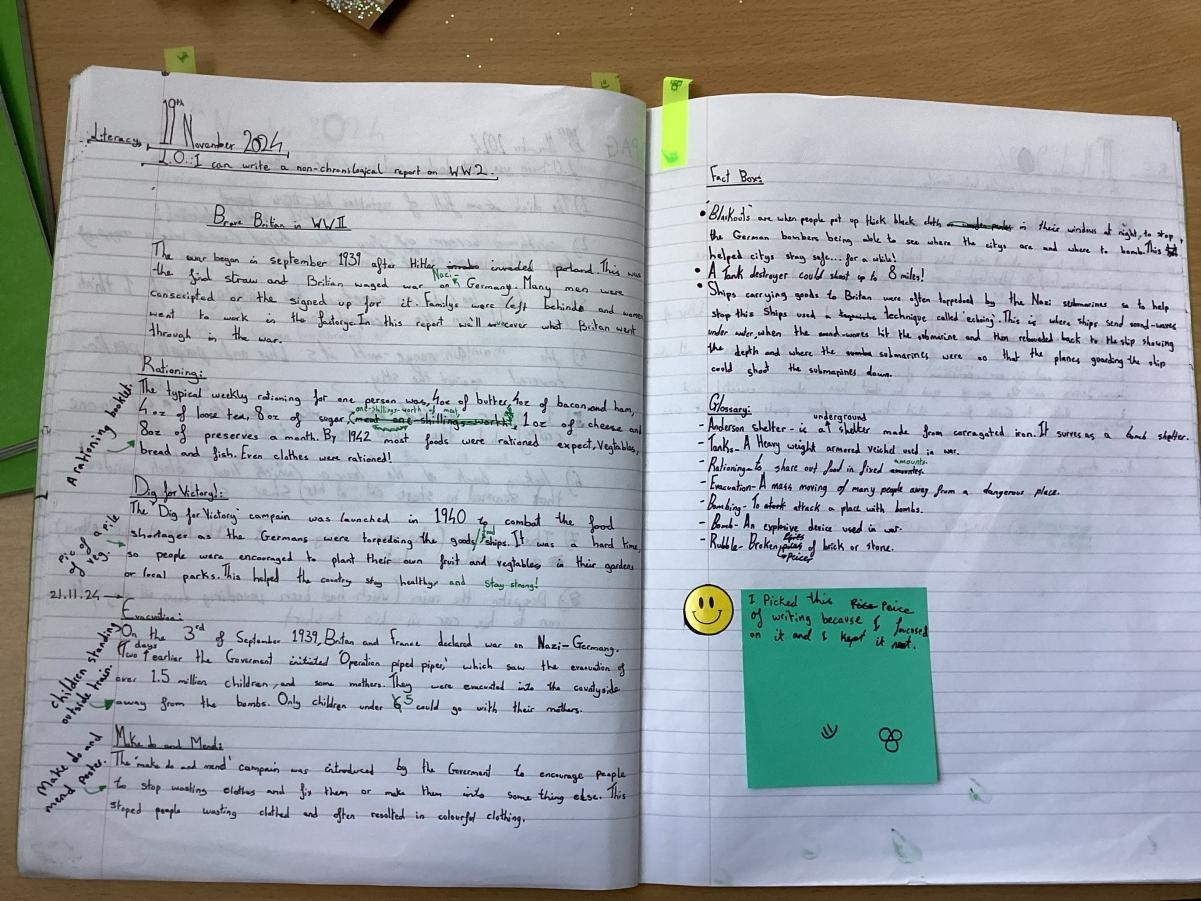 19th November 2024
Literacy
L.O: I can write a non-chronological report on WW2.
Brave Britian in WWII
The war began in september 1939 after Hitler invaded porland. This was
the final straw and Britian waged war on Nazi Germany. Many men were
conscripted or the signed up for it. Familys were left behinde and women
went to work in the factorys. In this report we'll uncover what Britan went
through in the war.
Rationing:
The typical weekly rationing for one person was, 4oz of butter, 4oz of bacon and ham,
4oz of loose tea, 8oz of sugar, one-shillings-worth of meat, 1oz of cheese and
8oz of preserves a month. By 1942 most foods were rationed expect, Vegtables,
bread and fish. Even clothes were rationed!
A rationing booklet.
Dig for Victory!:
The 'Dig for Victory' campain was launched in 1940 to combat the food
shortages as the Germans were torpedoing the goods/food ships. It was a hard time,
so people were encouraged to plant their own fruit and vegtables in their gardens
or local parks. This helped the country stay healthy and stay strong!
Pic of a pile of veg.
21.11.24
Evacuation:
On the 3rd of September 1939, Britan and France declared war on Nazi-Germany.
Two days earlier the Goverment initiated 'Operation piped piper,' which saw the evacuation of
over 1.5 million children, and some mothers. They were evacuated into the countyside
away from the bombs. Only children under 5 could go with their mothers.
children standing outside train.
Make do and Mend:
The 'make do and mend' campain was introduced by the Goverment to encourage people
to stop wasting clothes and fix them or make them into some thing else. This
stoped people wasting clothed and often resulted in colourful clothing.
Make do and mend poster.
Fact Box:
• 'Blackouts' are when people put up thick black cloth in their windows at night, to stop
the German bombers being able to see where the citys are and where to bomb. This
helped citys stay safe... for a while!
• A Tank destroyer could shoot up to 8 miles!
• Ships carrying goods to Britan were often torpedoed by the Nazi submarines so to help
stop this Ships used a technique called 'echoing'. This is where ships send sound-waves
under water, when the sound-waves hit the submarine and then rebounded back to the ship showing
the depth and where the submarines were so that the planes guarding the ship
could shoot the submarines down.
Glossary:
- Anderson shelter - is a underground shelter made from corragated iron. It surves as a bomb shelter.
- Tanks - A Heavy weight armored veichel used in war.
- Rationing - to share out food in fixed amounts.
- Evacuation - A mass moving of many people away from a dangerous place.
- Bombing - To attack a place with bombs.
- Bomb - An explosive device used in war.
- Rubble - Broken peices of brick or stone.
I Picked this Peice
of writing because I foucosed
on it and I kept it neat.